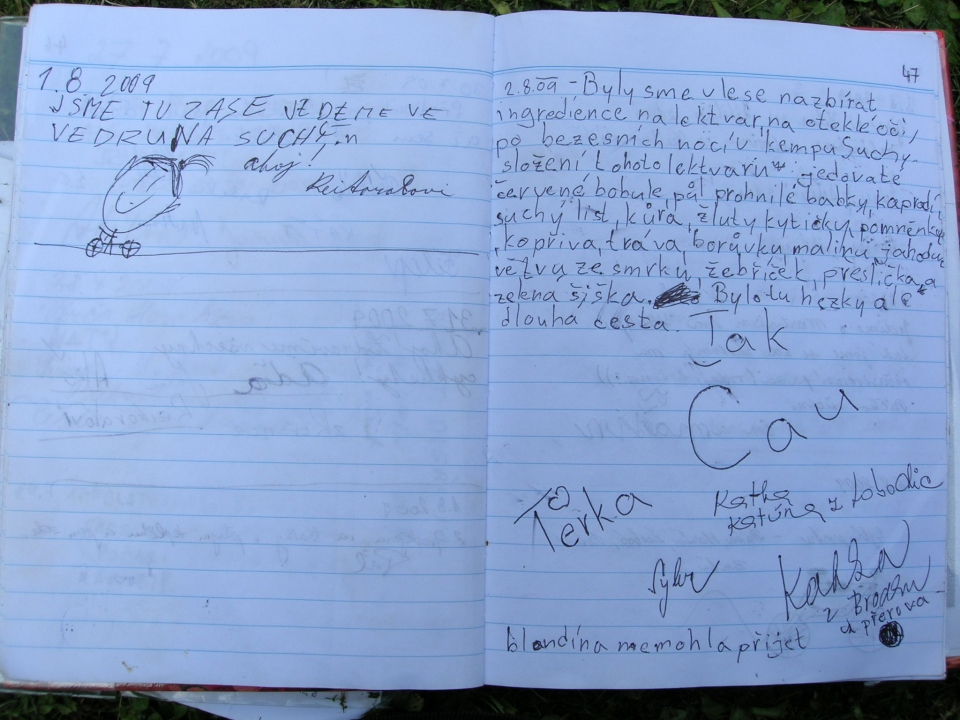 1.8.2009
JSME TU ZASE JEDEME VE
VEDRU NA SUCHÝ.
ahoj!
47
2.8.09 - Byly sme v lese nazbírat
ingredience na lektvar na oteklé oči,
po bezesních nocí v kempu Suchý.
složení tohoto lektvaru: jedovaté
červené bobule, půl prohnilé babky, kapradí,
suchý list, kůra, žlutý kytičky, pomněnky,
kopřiva, tráva, borůvku, malinu, jahodu,
větvu ze smrku, žebříček, preslička, a
zelena šiška. Bylo tu hezky ale
dlouha cesta.
Tak
Čau
Terka
Katka
Katúna z Lobodic
Sylva
Kadža
z Brodku
u přerova
blondína nemohla přijet